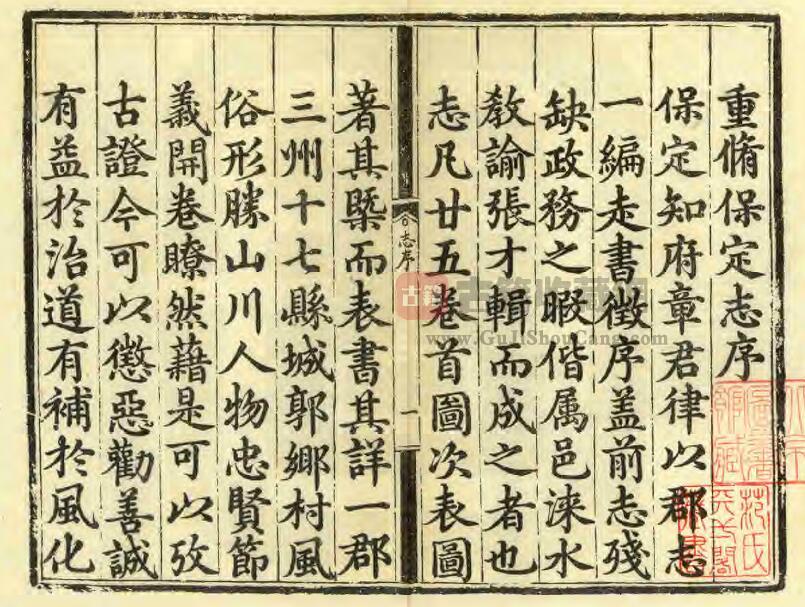 重脩保定志序
保定知府章君律以郡志
一編走書徴序盖前志殘
缺政務之暇偕属邑涞水
教諭張才輯而成之者也
志凡廿五卷首圖次表圖
志序
一
著其槩而表書其詳一郡
三州十七縣城郭鄉村風
俗形勝山川人物忠賢節
義開卷瞭然藉是可以攷
古證今可以懲惡勸善誠
有益於治道有補於風化
古籍
古籍收藏网
www.GuJiShouCang.com
范氏